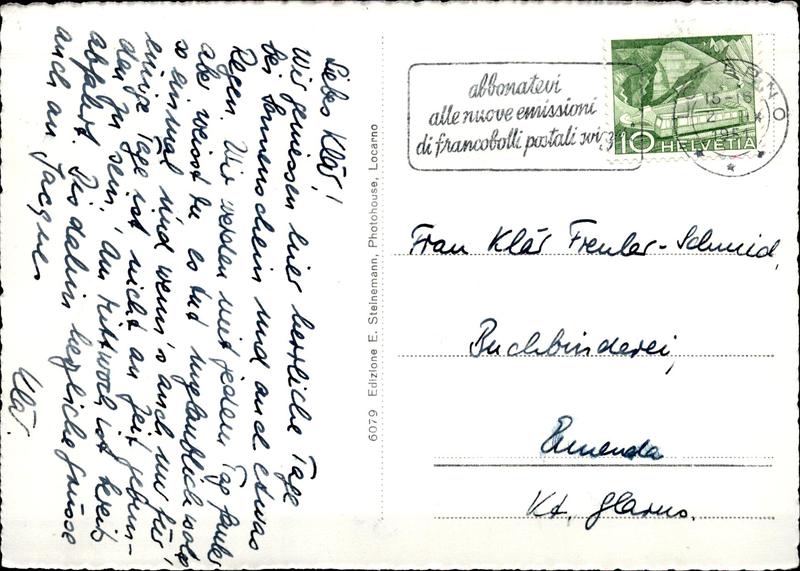 Liebes Klär!
Wir geniessen hier herrliche Tage
bei Sonnenschein und auch etwas
Regen. Wir werden mit jedem Tag
aber weisst Du, es tut unglaublich wohl
so einmal und wenn's auch nur für
einige Tage ist nicht an Zeit gebun-
den zu sein. Am Mittwoch ist bereits
abfahrt. Bis dahin herzliche Grüsse
auch an Jacques
Klär.
6079 Edizione E. Steinemann, Photohouse, Locarno
abbonatevi
alle nuove emissioni
di francobolli postali
10 HELVETIA
1951
Frau Klär Freuler-Schmid,
Buchbinderei,
Ennenda
Kt. Glarus.